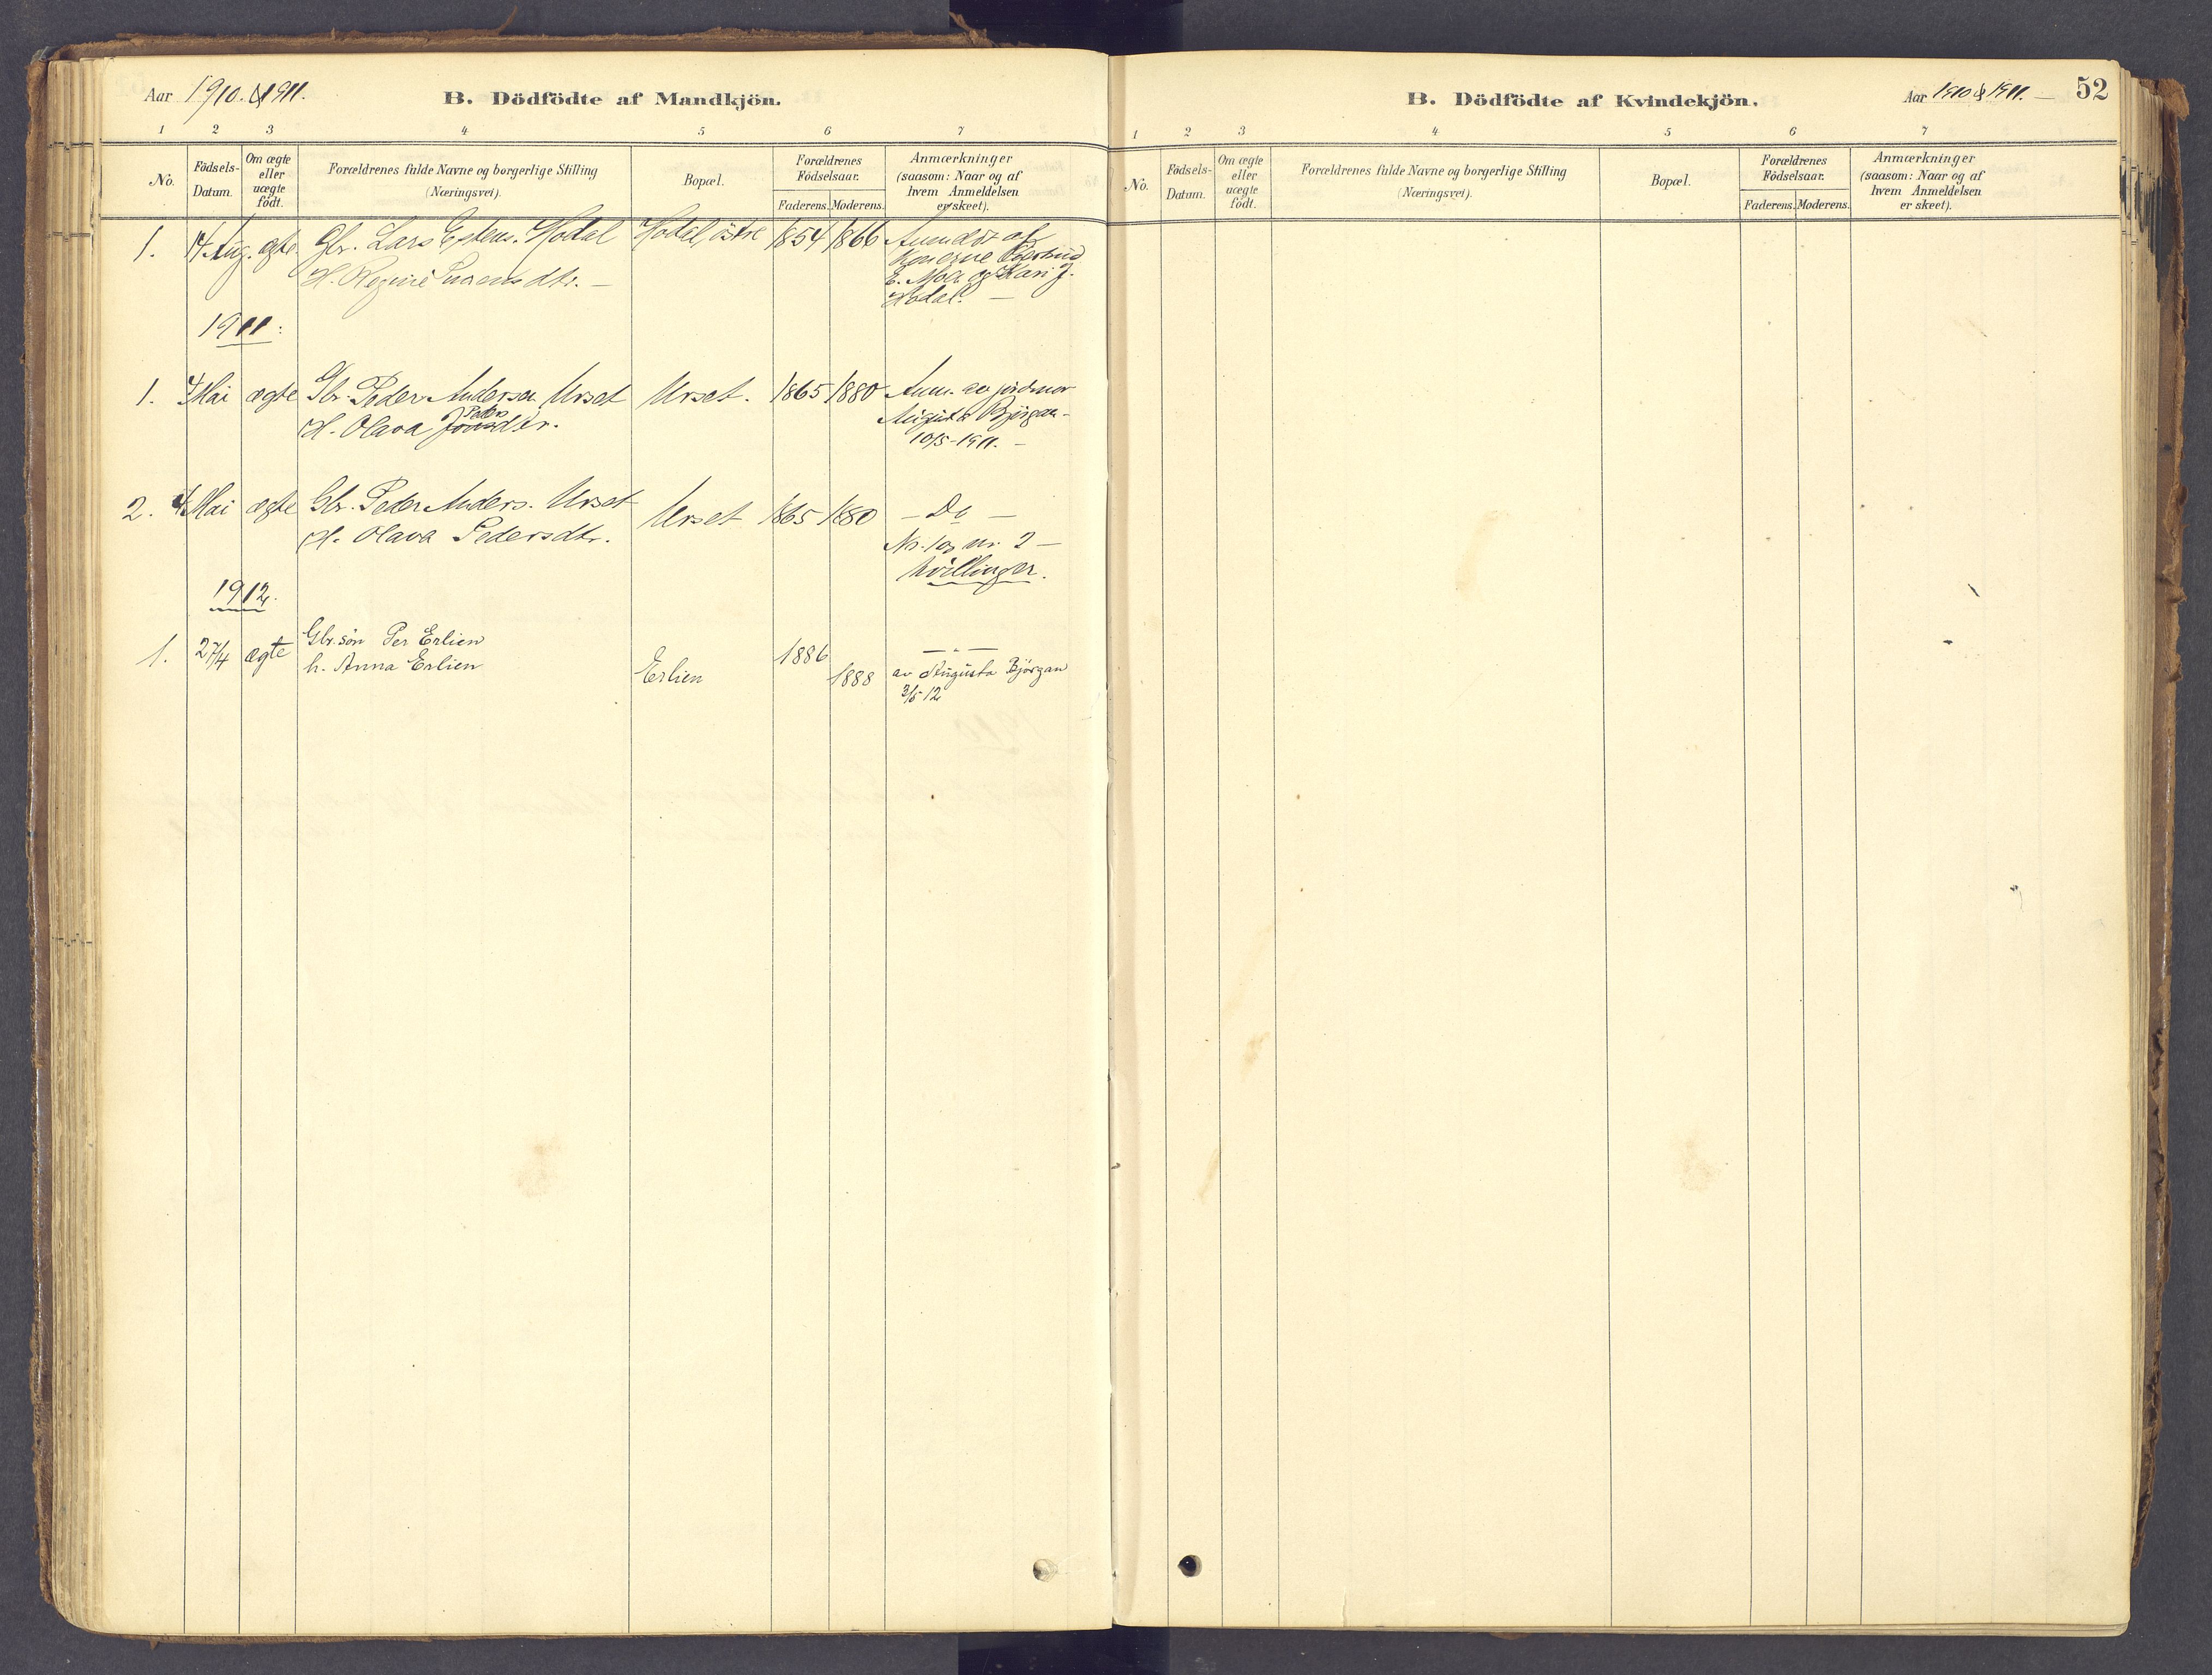 Aar 1910. & 1911.
B. Dödfödte af Mandkjön.
1 2 3 4 5 6 7
No.
Födsels-Datum.
Om ægte eller uægte födt.
Forældrenes fulde Navne og borgerlige Stilling (Næringsvei).
Bopæl.
Forældrenes Födselsaar.
Faderens. Moderens.
Anmærkninger (saasom: Naar og af hvem Anmeldelsen er skeet).
1. 14 Aug. ægte. Gbr. Lars Estens. Hodal Hodal, östre 1854 1866 Anmeldt af
H. Regine dtr. — Konerne
E. Moen og Kari J.
Hodal. —
1911:
1. 4 Mai ægte Gbr. Peder Andersen Urset Urset. 1865 1880 Anm. av jordmor
H. Olava Peders dtr. Augusta Bjørgan
10/5-1911. —
2. 4 Mai ægte Gbr. Peder Anders. Urset Urset 1865 1880 — Do —
H. Olava Pedersdtr. Nr. 1 og nr. 2 —
tvillinger.
1912.
1. 27/4 ægte Gbr.sön Per Erlien Erlien 1886 1888 — " —
h. Anna Erlien av Augusta Björgan
3/5 12
B. Dödfödte af Kvindekjön.
Aar 1910 & 1911. — 52
1 2 3 4 5 6 7
No.
Födsels-Datum.
Om ægte eller uægte födt.
Forældrenes fulde Navne og borgerlige Stilling (Næringsvei).
Bopæl.
Forældrenes Födselsaar.
Faderens. Moderens.
Anmærkninger (saasom: Naar og af hvem Anmeldelsen er skeet).